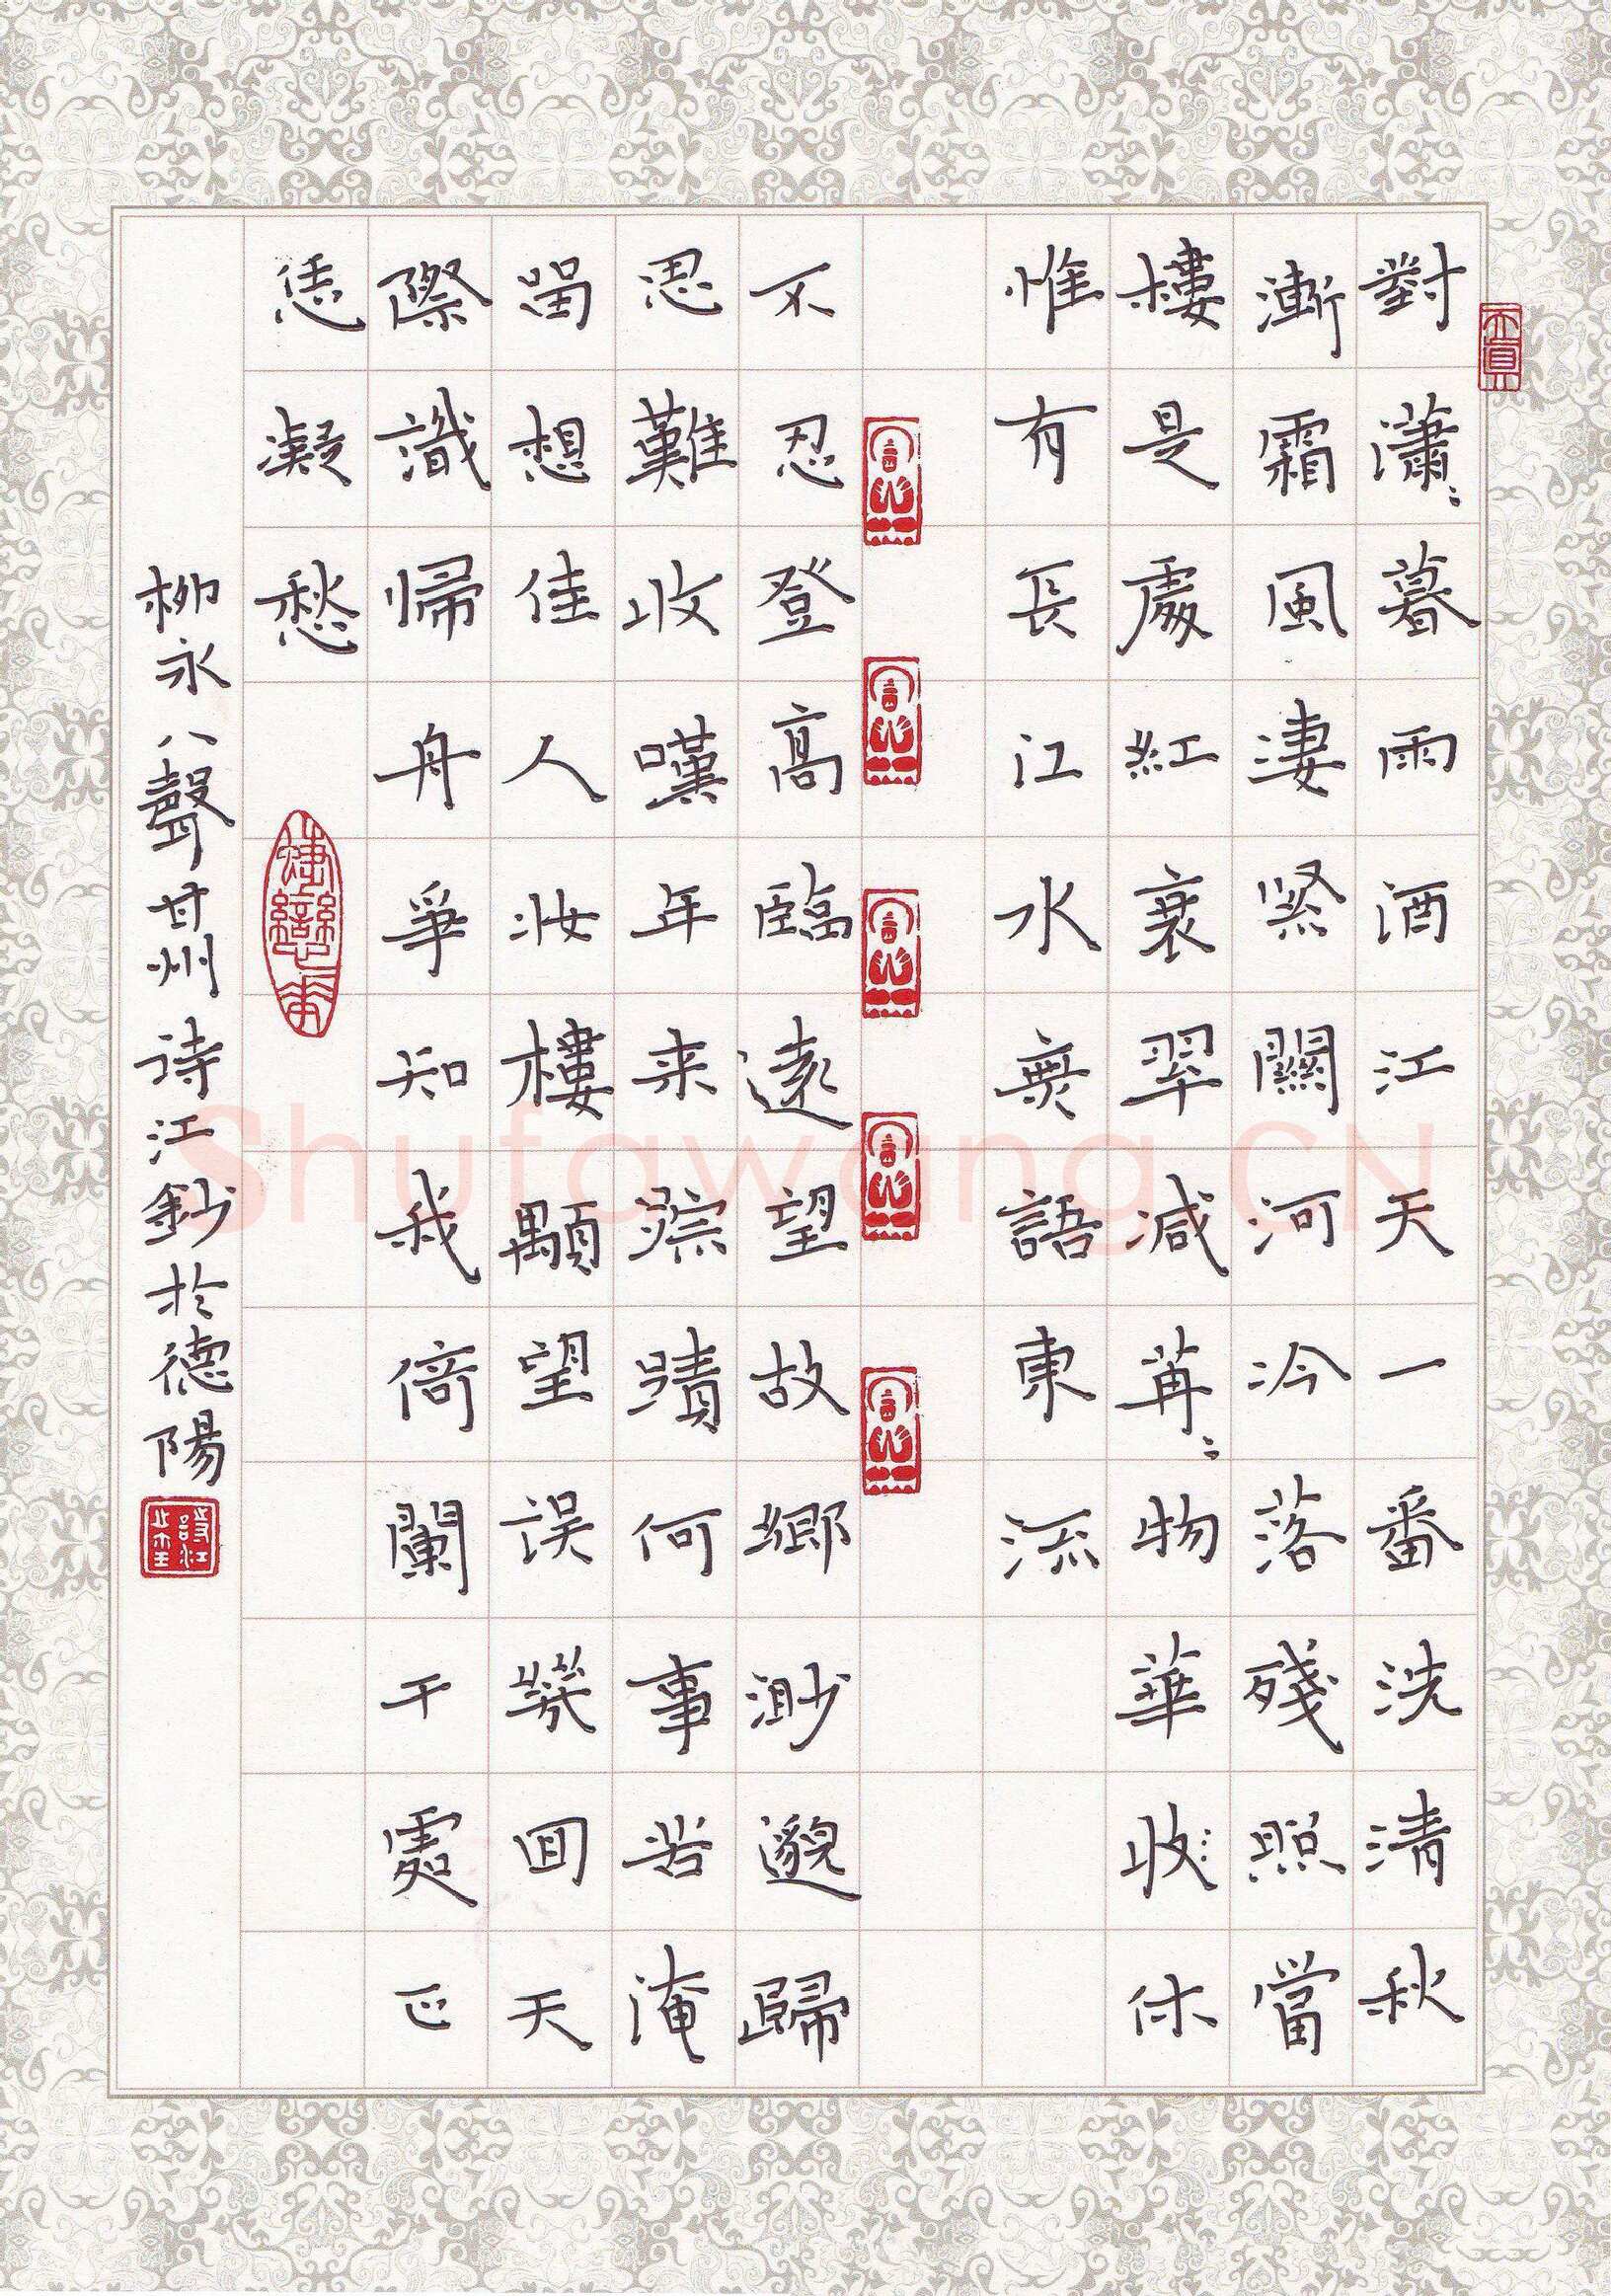 對瀟〻暮雨酒江天一番洗清秋
漸霜風淒緊關河冷落殘照當
樓是處紅衰翠減苒〻物華收休
惟有長江水無語東流
不忍登高臨遠望故鄉渺邈歸
思難收嘆年来蹤蹟何事苦淹
留想佳人妝樓顒望誤幾回天
際識歸舟爭知我倚闌干處正
恁凝愁
柳永八聲甘州 诗江鈔於德陽
Shufawang.CN